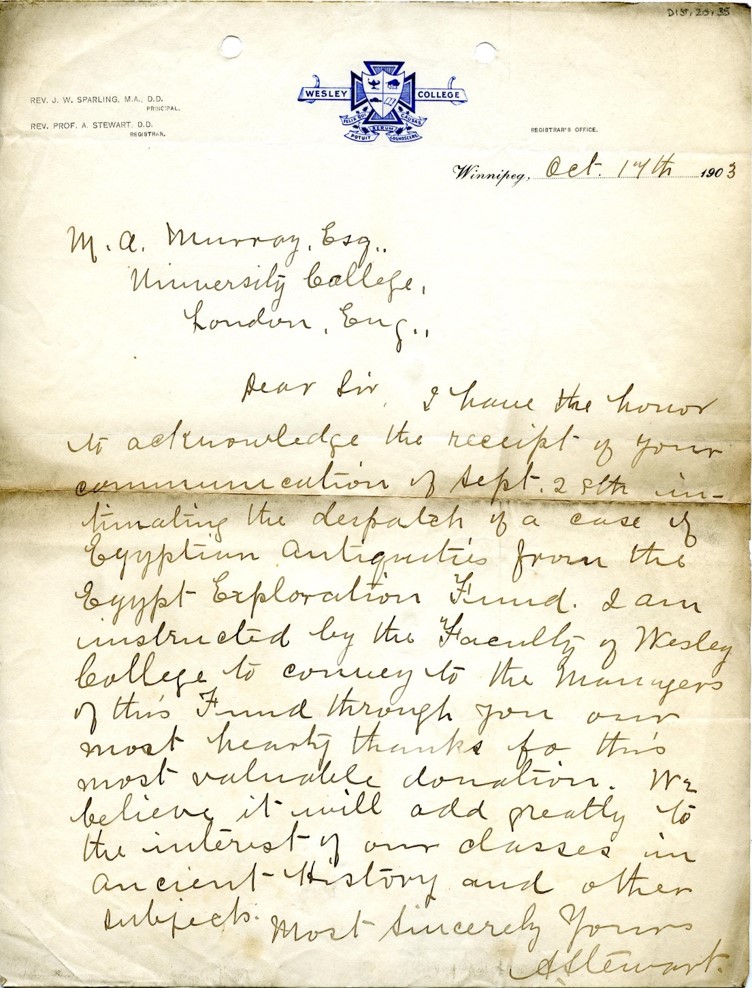 DIST.20.35
REV. J. W. SPARLING, M.A., D.D.
PRINCIPAL.
REV. PROF. A. STEWART, D.D.
REGISTRAR.
WESLEY COLLEGE
REGISTRAR'S OFFICE.
Winnipeg, Oct. 17th 1903
M. A. Murray, Esq.,
University College,
London, Eng.,
Dear Sir, I have the honor
to acknowledge the receipt of your
communication of Sept. 28th in-
timating the despatch of a case of
Egyptian Antiquities from the
Egypt Exploration Fund. I am
instructed by the Faculty of Wesley
College to convey to the Managers
of this Fund through you our
most hearty thanks fo this
most valuable donation. We
believe it will add greatly to
the interest of our classes in
Ancient History and other
subjects. Most Sincerely Yours
A Stewart.